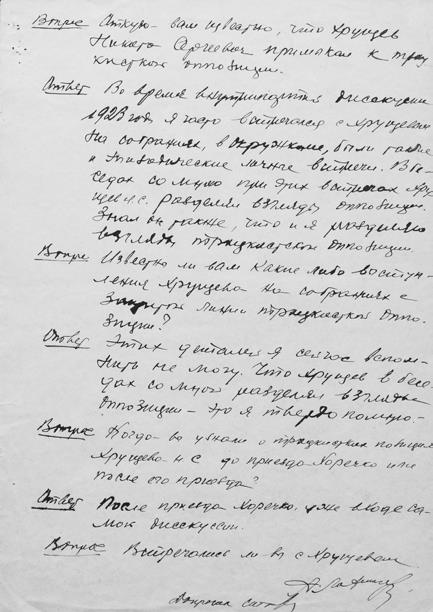 Вопрос Откуда вам известно, что Хрущев
Никита Сергеевич примыкал к троц-
кистской оппозиции.
Ответ Во время внутрипарт. дискуссии
1923 года я часто встречался с Хрущевым
на собраниях, в окружкоме, были также
и эпизодические личные встречи. В бе-
седах со мной при этих встречах Хру-
щев Н.С. разделял взгляды оппозиции.
Знал он также, что и я разделяю
взгляды троцкистской оппозиции.
Вопрос Известно ли вам какие либо выступ-
ления Хрущева на собраниях с
защитой линии троцкисткой оппо-
зиции?
Ответ Этих деталей я сейчас вспом-
нить не могу. Что Хрущев в бесе-
дах со мной разделял взгляды
оппозиции – это я твердо помню.-
Вопрос Когда вы узнали о троцкистких позициях
Хрущева Н С до приезда Хоречко или
после его приезда?
Ответ После приезда Хоречко, уже в ходе са-
мой дисскуссии.
Вопрос Встречались ли вы с Хрущевым
Допросил